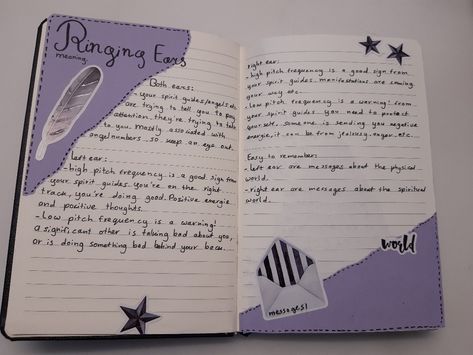 Ringing Ears
meaning.
Both ears:
- your spirit guides/angels etc
are trying to tell you to pay
attention. they're trying to talk
to you. mostly associated with
angelnumbers. so keep an eye out.
Left ear:
- high pitch frequency is a good sign from
your spirit guides. you're on the right
track, you're doing good. Positive energie
and positive thoughts.
- low pitch frequency is a warning!
a significant other is talking bad about you,
or is doing something bad behind your back...
right ear:
- high pitch frequency is a good sign from
your spirit guides. manifestations are coming
your way etc.
- low pitch frequency is a warning! from
your spirit guides. you need to protect
yourself. someone is sending you negative
energie, it can be from jealousy, anger, etc...
Easy to remember:
- left ear are messages about the physical
world.
- right ear are messages about the spiritual
world.
world
messages!